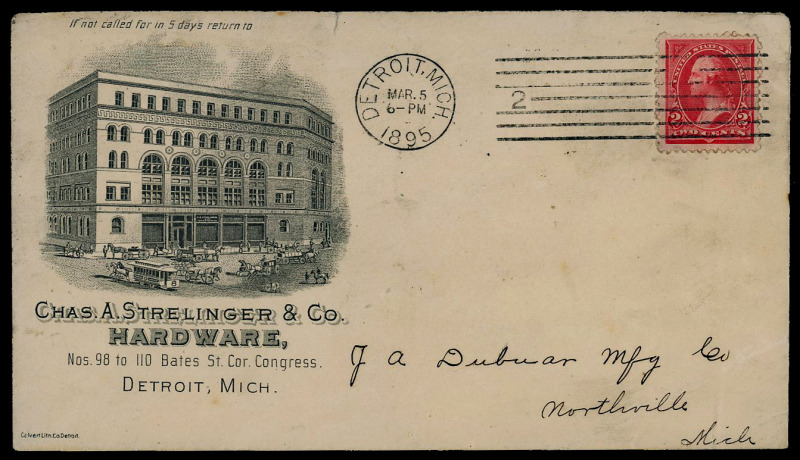 If not called for in 5 days return to
DETROIT, MICH.
MAR. 5
6-PM
1895
2
UNITED STATES POSTAGE
2 TWO CENTS 2
CHAS. A. STRELINGER & CO.
HARDWARE,
Nos. 98 to 110 Bates St. Cor. Congress.
DETROIT, MICH.
J A Dubuar Mfg Co
Northville
Mich
Calvert Lith. Co. Detroit.